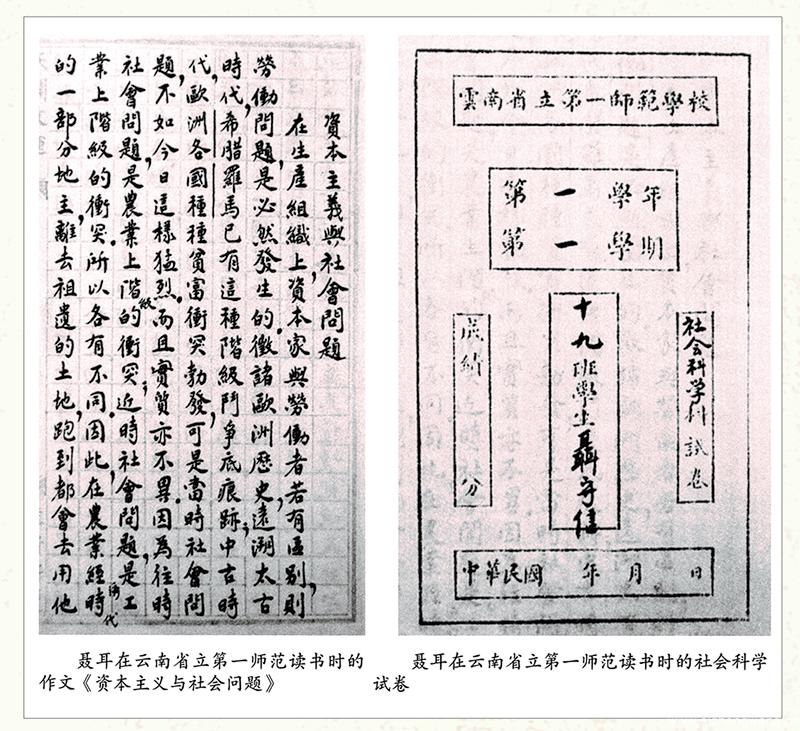 資本主義與社會問題
在生產組織上,資本家與勞働者若有區别,則
勞働問題,是必然發生的,徵諸歐洲歷史,遠溯太古
時代,希腊羅馬已有這種階級鬥爭底痕跡;中古時
代,歐洲各國種種貧富衝突勃發,可是當時社會問
題,不如今日這樣猛烈。而且實質亦不異。因為往時
社會問題,是農業上階級的衝突;近時社會問題,是工
業上階級的衝突。所以各有不同。因此,在農業經濟時代
的一部分地主,離去祖遺的土地,跑到都會去用他
雲南省立第一師範學校
第一學年
第一學期
社会科学科試卷
十九班學生聶守信
成績 分
中華民國 年 月 日
聂耳在云南省立第一师范读书时的
作文《资本主义与社会问题》
聂耳在云南省立第一师范读书时的社会科学
试卷